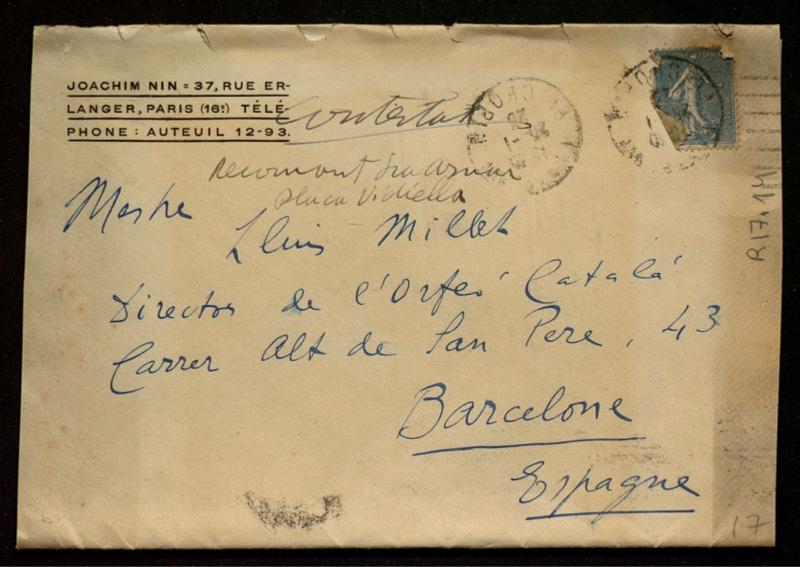 JOACHIM NIN = 37, RUE ER-
LANGER, PARIS (16e) TÉLÉ-
PHONE : AUTEUIL 12-93.
Contestat
placa Vidiella
Mestre
Lluis Millet
Director de l'Orfeó Català
Carrer Alt de San Pere, 43
Barcelone
Espagne
CHOPIN
R17.14
17